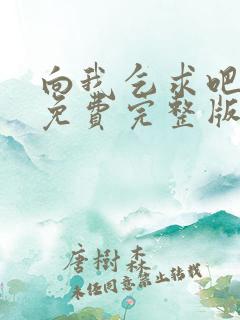 向我乞求吧
免費完整版
唐樹森
未经同意禁止转载